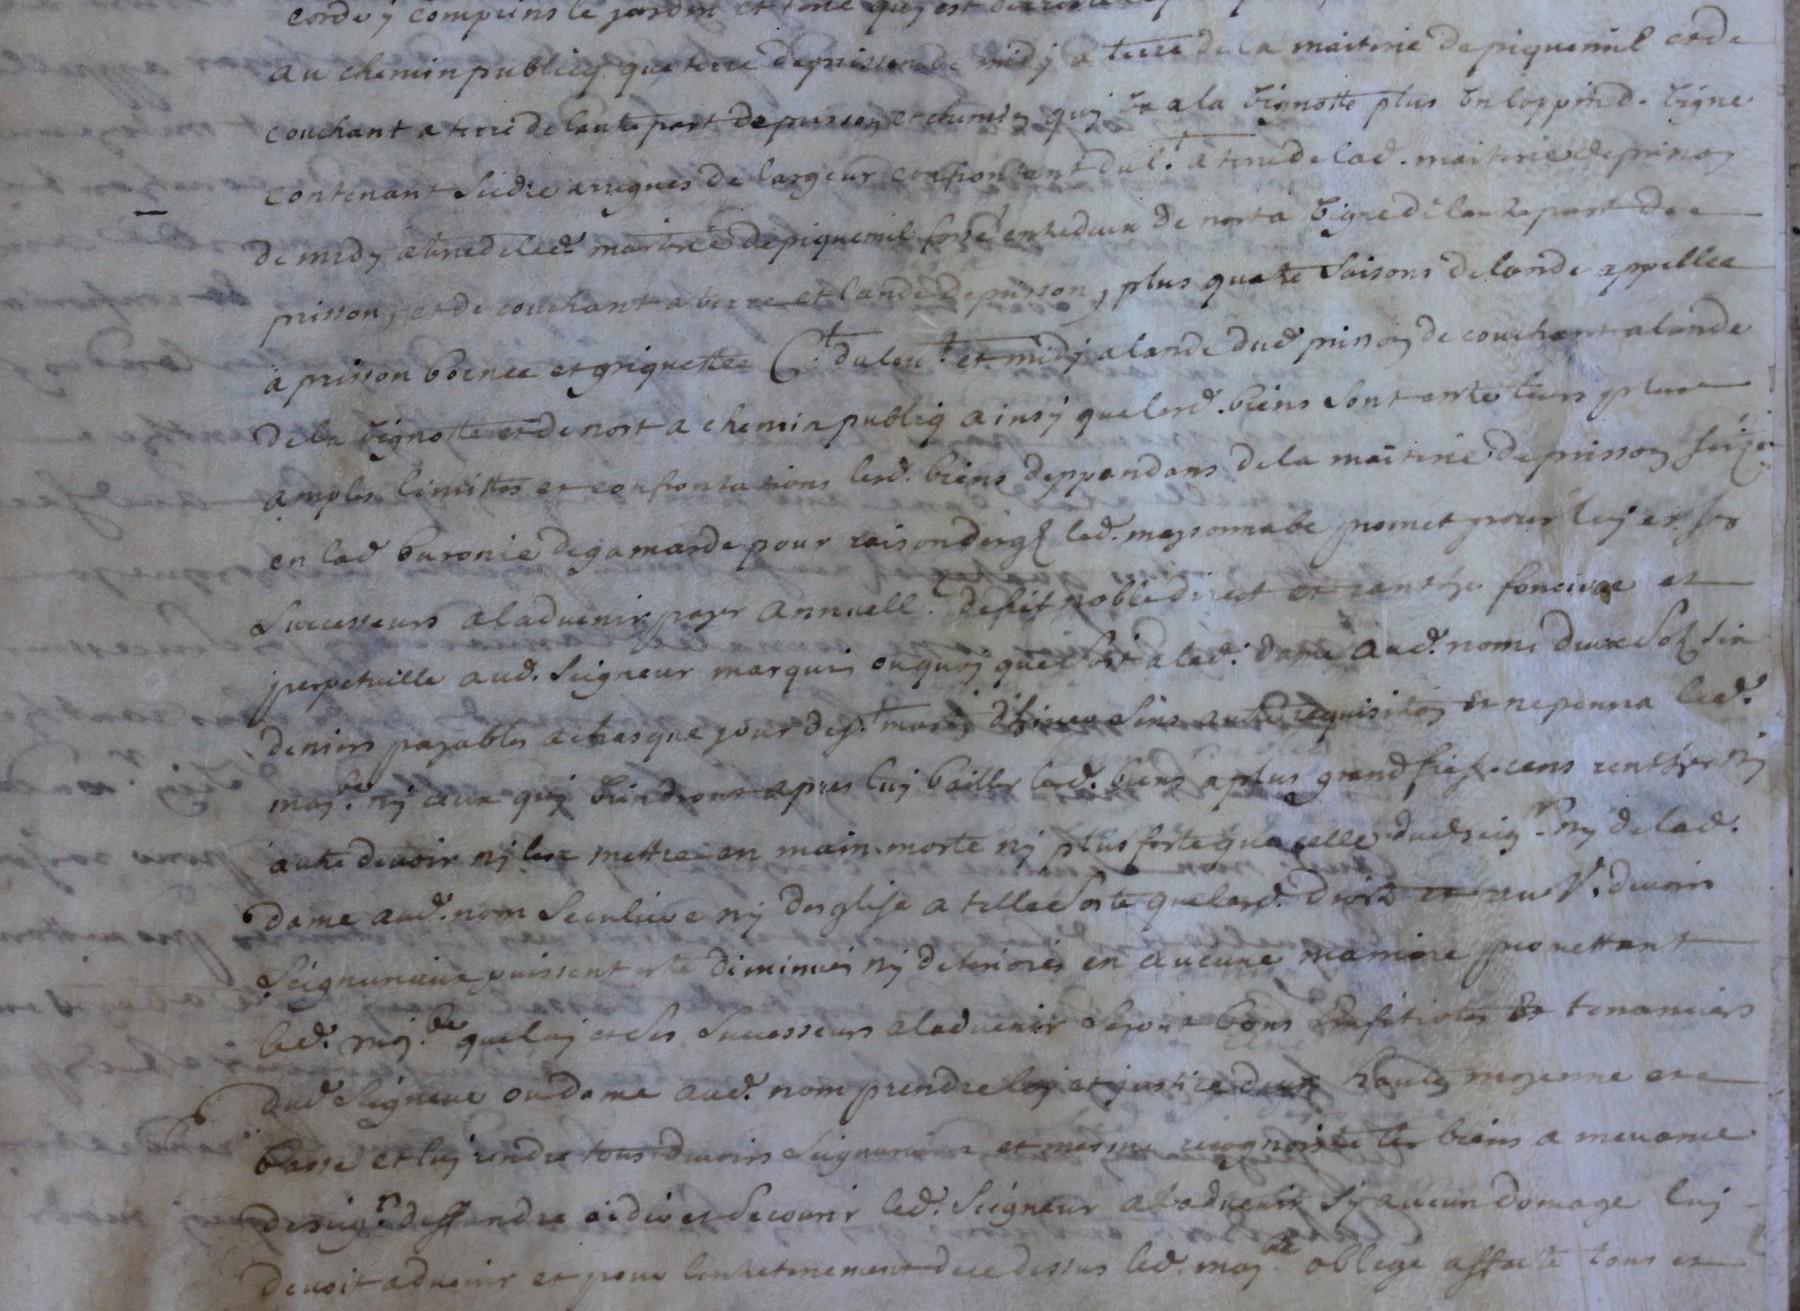 corde y comprins le jardin et terre quy est derriere
au chemin publicq que terre de prisson de midy a terre de la maiterie de piquemil et de
couchant a terre de lautre part de prisson et chemin quy va a la vignotte plus un loppin de vigne
contenant seidze arregues de largeur confrontant du l.t a terre de lad. maiterie de prisson
de midy a terre de led. maiterie de piquemil fossé entredeux de nort a vigne de lautre part de
prisson, et de couchant a terre et lande de prisson, plus quatre saisons de lande appellee
a prisson bornee et griquettee C.t du leu.t et midy a lande dud prisson de couchant a lande
de la vignotte et de nort a chemin publiq ainsy que lesd. biens sont entre leurs plus
amples limittes et confrontations lesd. biens deppandans de la maiterie de prisson size
en lad baronie de gamarde pour raison desq led. maysonnabe promet pour luy et ses
successeurs a ladvenir payer annuell.t de fief noble direct et rantte fonciere et
perpetuille aud. seigneur marquis ou quoy que soit a lad. dame aud. noms deux solz six
deniers payables a chasque jour de s.t martin dhiver sans autre requisition et ne pourra led.
may.be ny ceux quy viendront apres luy bailler lesd. biens a plus grand fief cens rentte ny
autre devoir ny les mettre en main morte ny plus forte que celle dud seig.r ny de lad.
dame aud. nom seculiere ny desglise a telle sorte que lesd. droits et au.s devoirs
seigneuriaux puissent estre diminués ny deteriorés en aucune maniere promettant
led. may.be que luy et ses successeurs a ladvenir seront bons emfitiotes et tenanciers
dud seigneur ou dame aud. nom prendre loy et justice deux haute moyenne et
basse et luy rendre tous devoirs seigneuriaux et mesme recognoistre les biens a
de seig.r deffendre aider et secourir led. seigneur a ladvenir sy aucun domage luy
devoit advenir et pour lentretenement de ce dessus led. may.be oblege affecte tous et